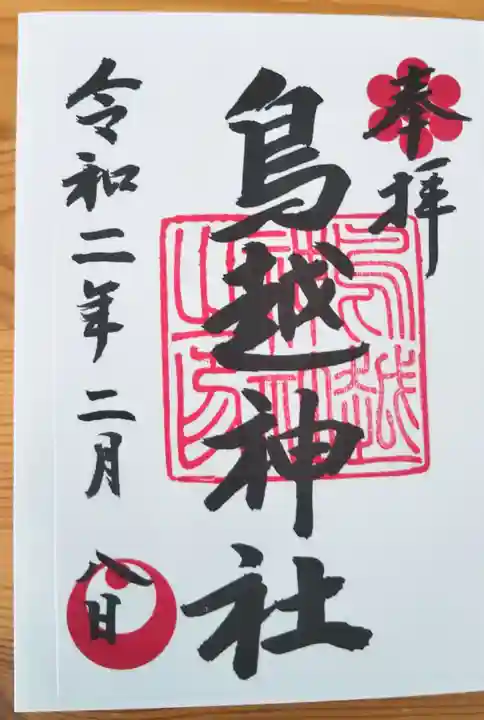 奉拝
鳥越神社
令和二年二月八日